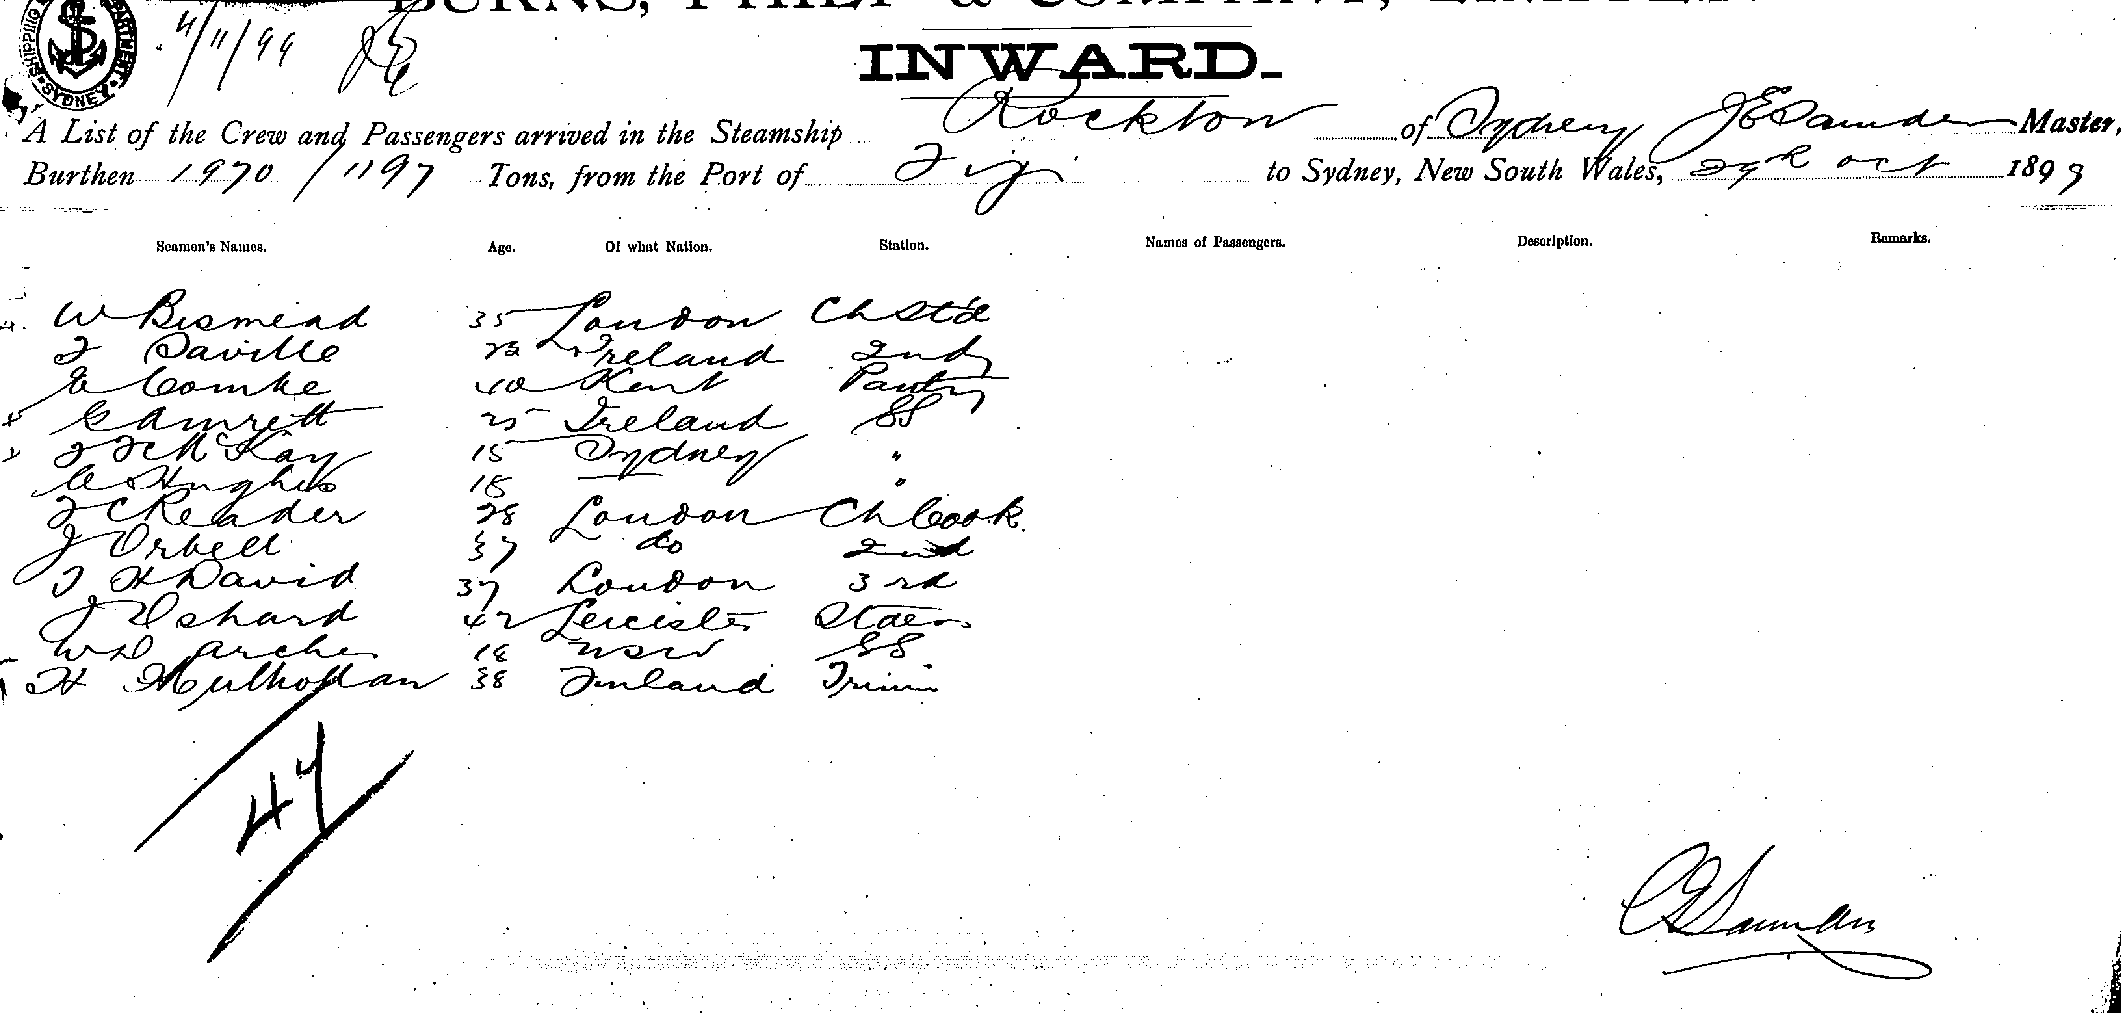 BURNS, PHILP & COMPANY, LIMITED.
SHIPPING DEPARTMENT SYDNEY
4/11/99
INWARD.
A List of the Crew and Passengers arrived in the Steamship Rockton of Sydney J E Saunders Master,
Burthen 1970/1197 Tons, from the Port of Fiji to Sydney, New South Wales, 29th Oct 1899
Seamen's Names. Age. Of what Nation. Station. Names of Passengers. Description. Remarks.
W Bismead 35 London Ch Std
F Saville 23 Ireland 2nd
Combe 40 Kent Pantry
G 25 Ireland SS
McKay 15 Sydney "
Hughes 18 "
F C Reader 28 London Ch Cook
J Orbell 37 do 2nd
T H David 37 London 3rd
J 42 Leicister
W D Archer 18 NSW SS
H 38 Finland
47
Saunders